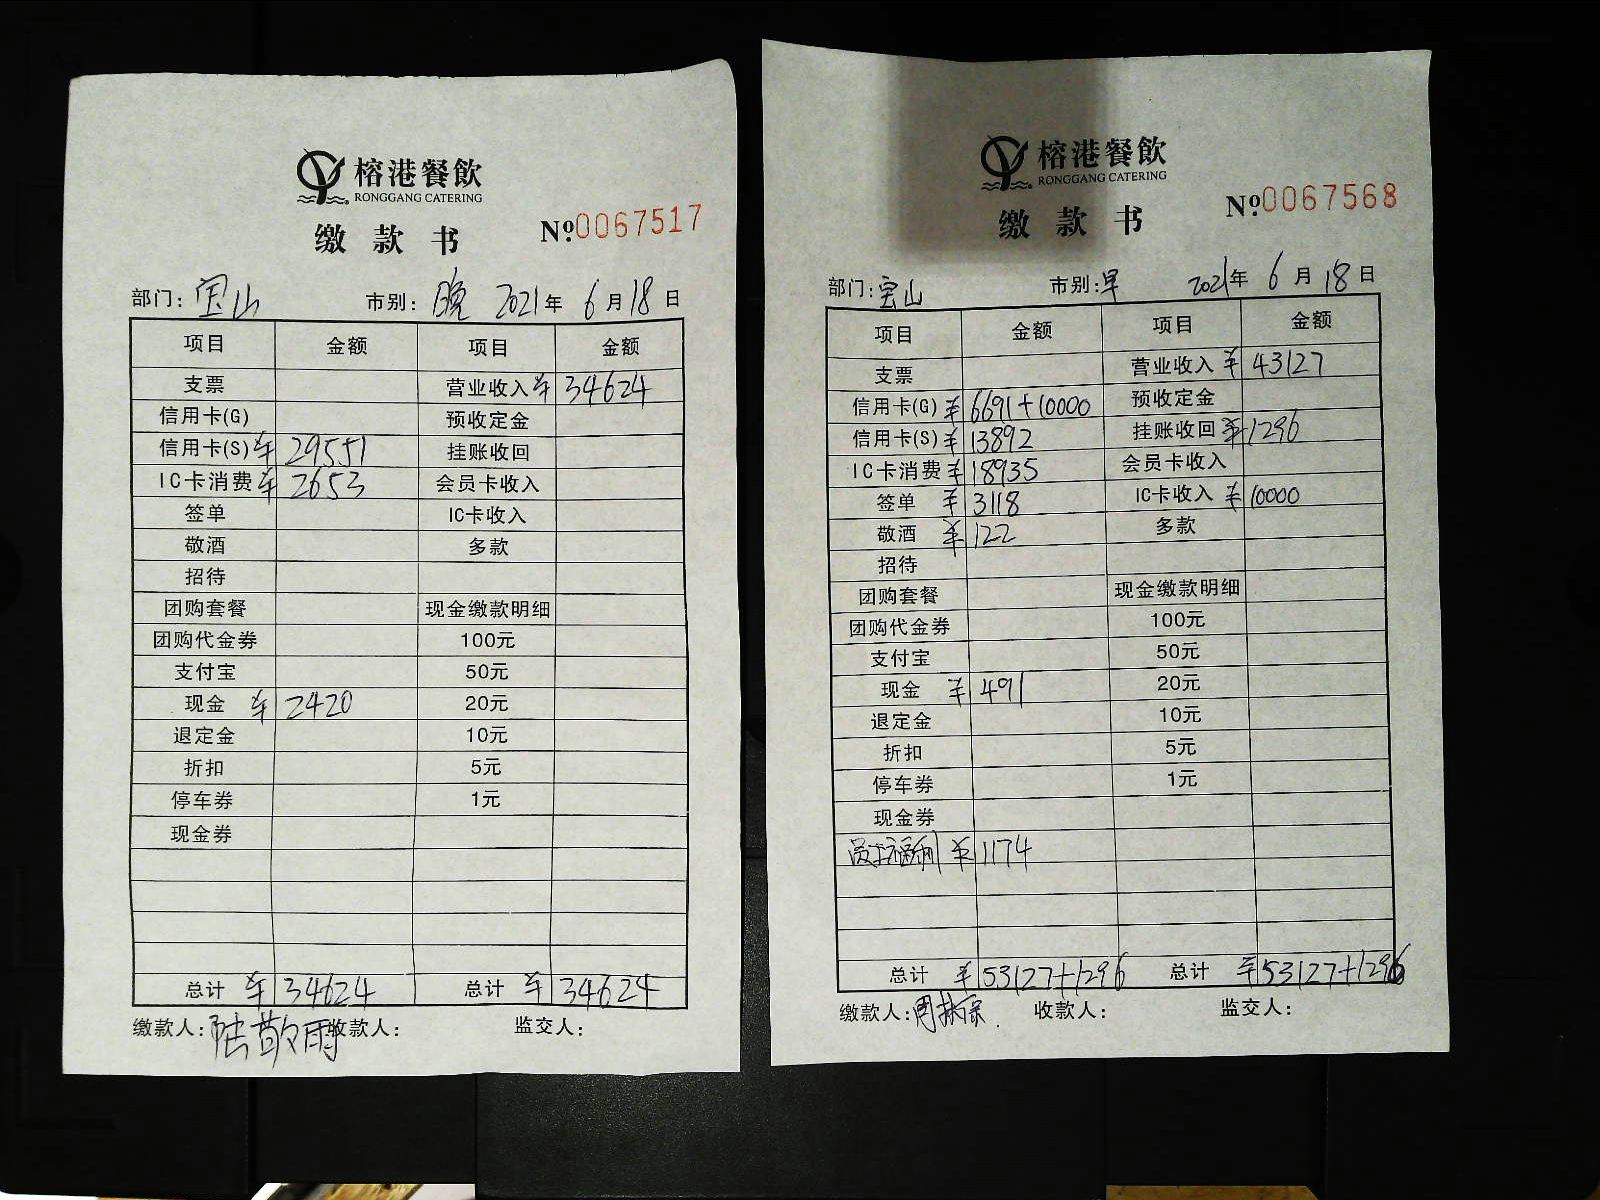 榕港餐飲
RONGGANG CATERING
缴款书
№0067517
部门: 宝山 市别: 晚 2021年 6月18日
项目 金额 项目 金额
支票 营业收入 ¥34624
信用卡(G) 预收定金
信用卡(S) ¥29551 挂账收回
IC卡消费 ¥2653 会员卡收入
签单 IC卡收入
敬酒 多款
招待
团购套餐 现金缴款明细
团购代金券 100元
支付宝 50元
现金 ¥2420 20元
退定金 10元
折扣 5元
停车券 1元
现金券
总计 ¥34624 总计 ¥34624
缴款人: 陆敬雨 收款人: 监交人:
榕港餐飲
RONGGANG CATERING
缴款书
№0067568
部门: 宝山 市别: 早 2021年 6月18日
项目 金额 项目 金额
支票 营业收入 ¥43127
信用卡(G) ¥6691+10000 预收定金
信用卡(S) ¥13892 挂账收回 ¥1296
IC卡消费 ¥18935 会员卡收入
签单 ¥3118 IC卡收入 ¥10000
敬酒 ¥122 多款
招待
团购套餐 现金缴款明细
团购代金券 100元
支付宝 50元
现金 ¥491 20元
退定金 10元
折扣 5元
停车券 1元
现金券
员工福利 ¥1174
总计 ¥53127+1296 总计 ¥53127+1296
缴款人: 收款人: 监交人: